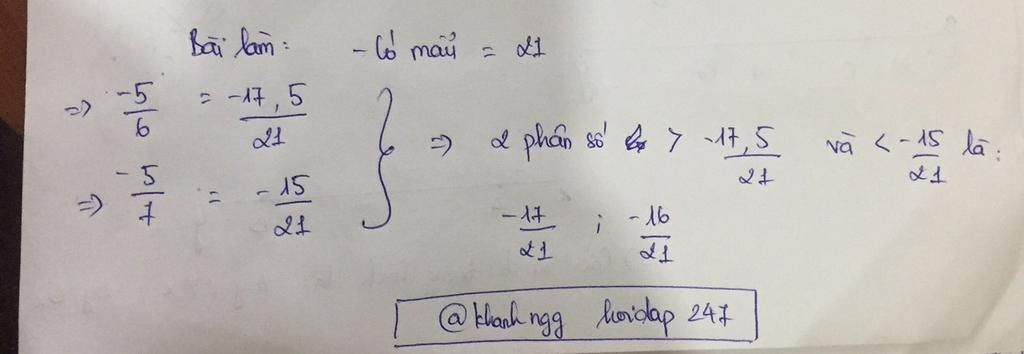 Bài làm: - Có mẫu = 21
=> -5/6 = -17,5/21
=> -5/7 = -15/21
=> 2 phân số > -17,5/21 và < -15/21 là:
-17/21 ; -16/21
@khanhngg hoidap 247